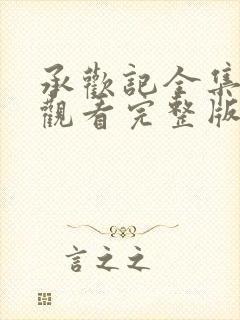 承歡記全集
觀看完整版
言之之